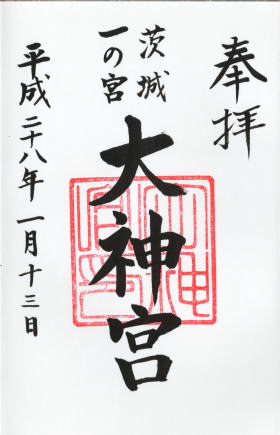 奉拝
茨城
一の宮
大神宮
平成二十八年一月十三日